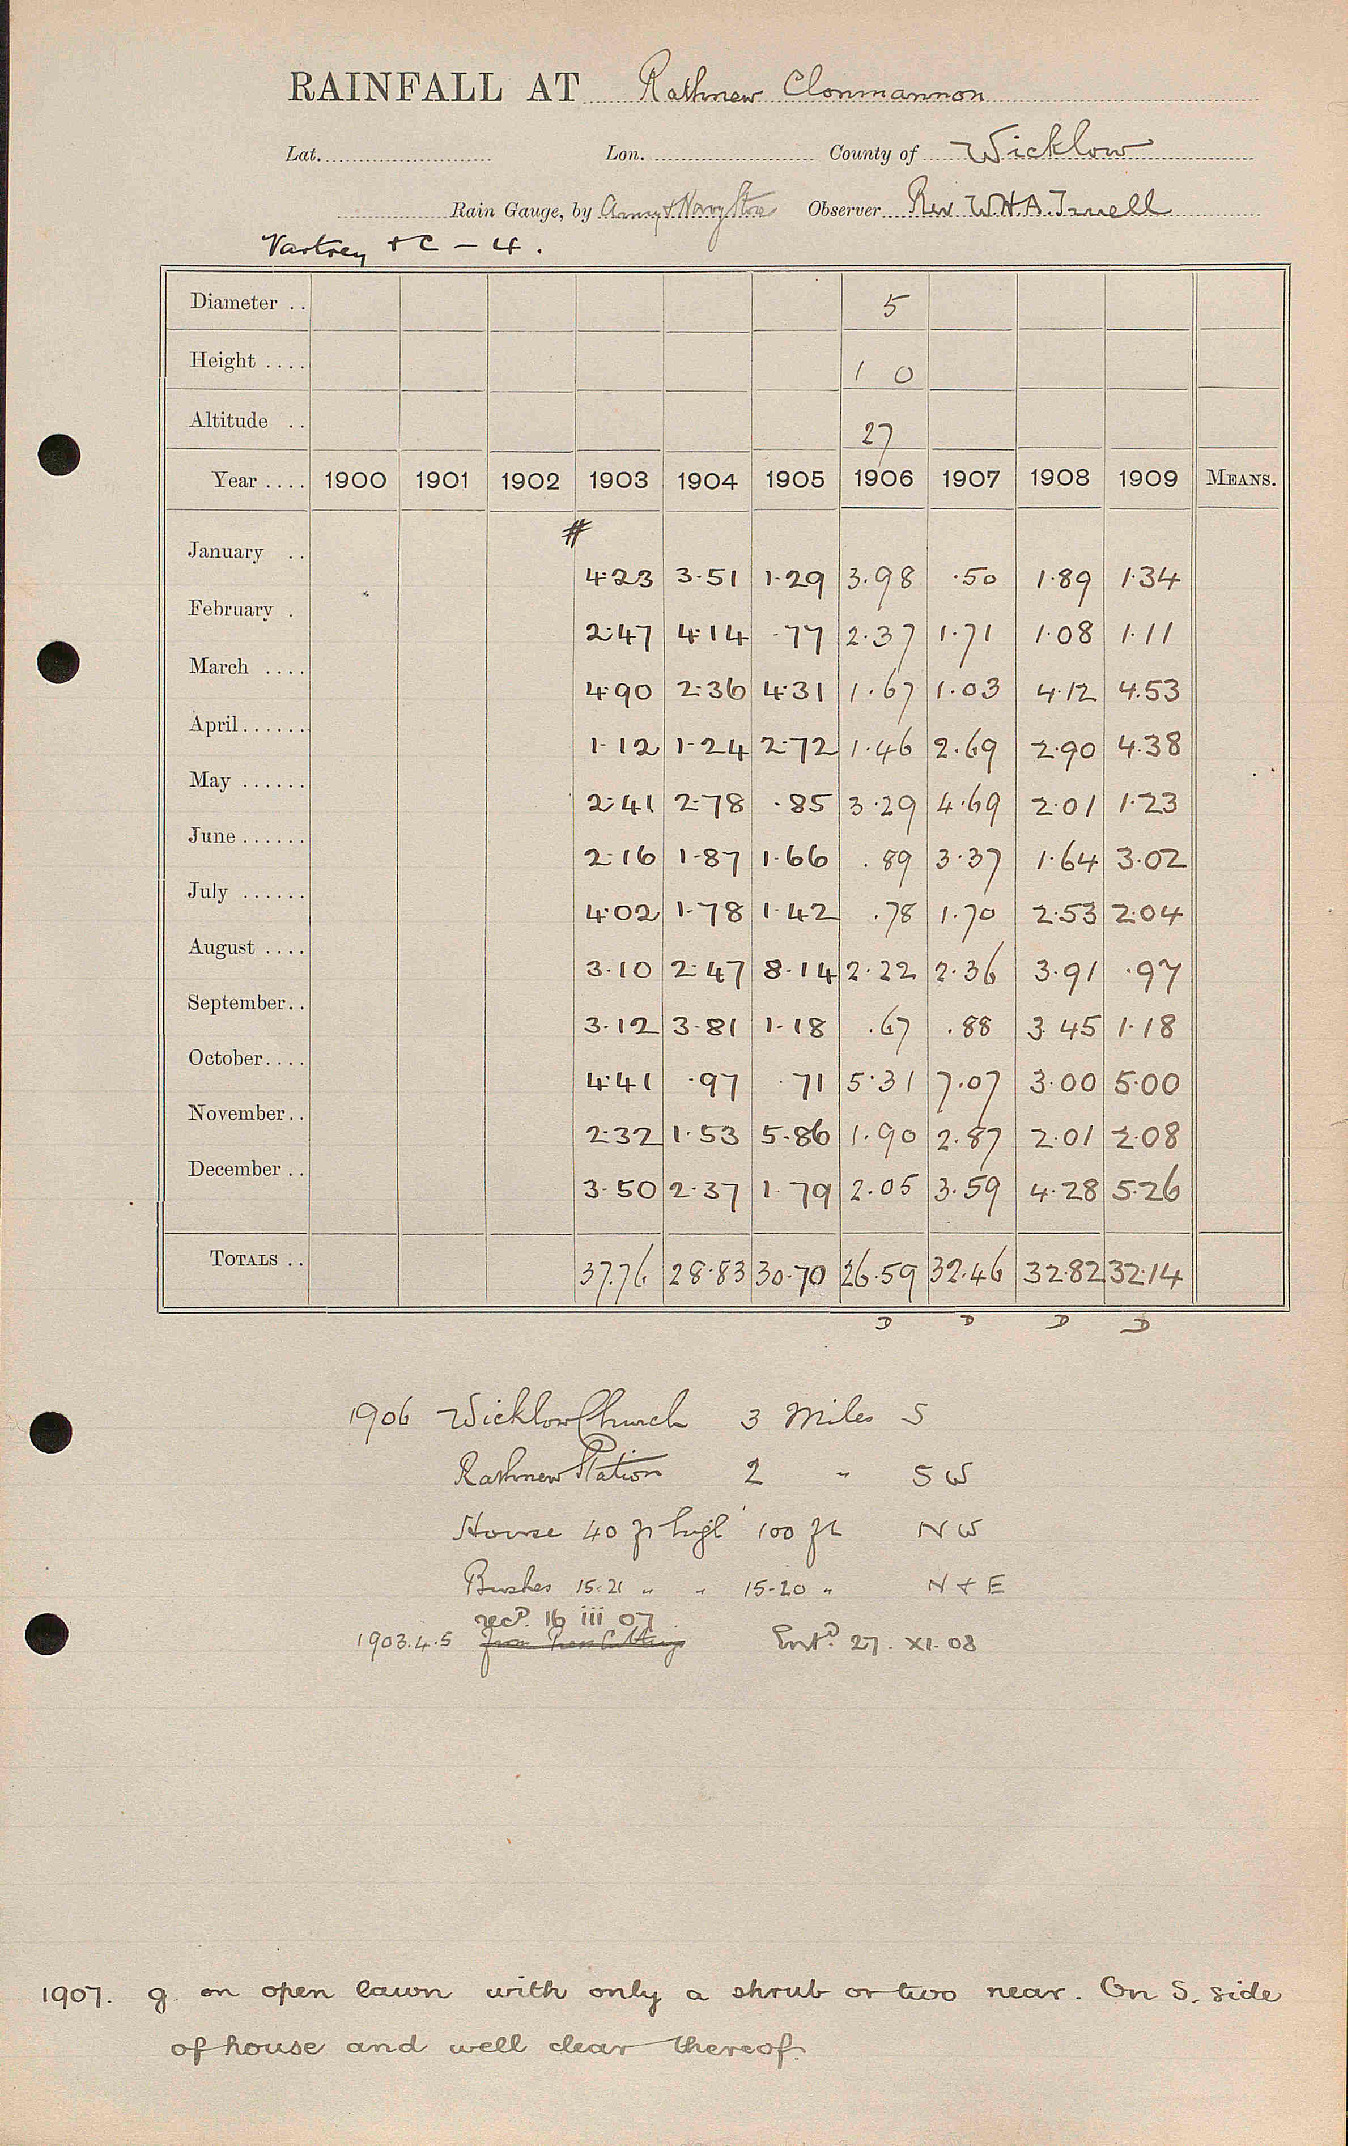 RAINFALL AT Rathnew Clonmannon
Lat. Lon. County of Wicklow
Rain Gauge, by Army & Navy Store Observer Rev W.H.A. Truell
Vartrey + C – 4.
Diameter .. 5
Height .... 1 0
Altitude .. 27
Year .... 1900 1901 1902 1903 1904 1905 1906 1907 1908 1909 MEANS.
#
January .. 4.23 3.51 1.29 3.98 .50 1.89 1.34
February . 2.47 4.14 .77 2.37 1.71 1.08 1.11
March .... 4.90 2.36 4.31 1.67 1.03 4.12 4.53
April...... 1.12 1.24 2.72 1.46 2.69 2.90 4.38
May ...... 2.41 2.78 .85 3.29 4.69 2.01 1.23
June...... 2.16 1.87 1.66 .89 3.37 1.64 3.02
July ...... 4.02 1.78 1.42 .78 1.70 2.53 2.04
August .... 3.10 2.47 8.14 2.22 2.36 3.91 .97
September.. 3.12 3.81 1.18 .67 .88 3.45 1.18
October.... 4.41 .97 .71 5.31 7.07 3.00 5.00
November.. 2.32 1.53 5.86 1.90 2.87 2.01 2.08
December .. 3.50 2.37 1.79 2.05 3.59 4.28 5.26
TOTALS .. 37.76 28.83 30.70 26.59 32.46 32.82 32.14
D D D D
1906 Wicklow Church 3 Miles S
Rathnew Station 2 " SW
House 40 ft high 100 ft NW
Bushes 15-21 " " 15-20 " N & E
recd. 16 iii 07
1903.4.5 from Press Cuttings Entd. 27. XI. 08
1907. g. on open lawn with only a shrub or two near. On S. side
of house and well clear thereof.